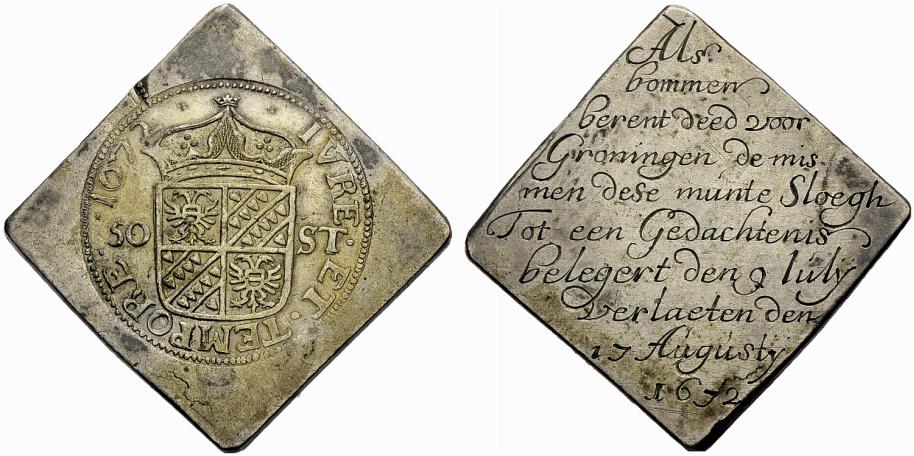 ·1672·
IVRE·ET·TEMPORE·
50 ST·
Als
bommen
berent deed voor
Groningen de mis
men dese munte Sloegh
Tot een Gedachtenis
belegert den 9 Iuly
verlaeten den
17 Augusty
1672